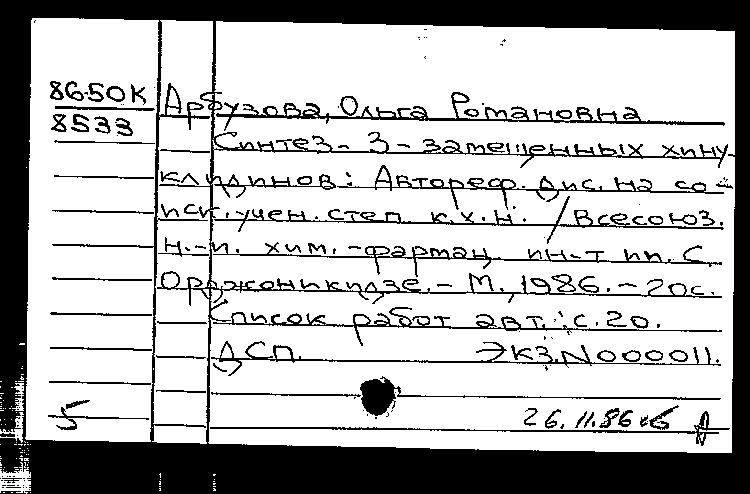 8650К Арбузова, Ольга Романовна
8533 Синтез-3-замещенных хину-
клидинов: Автореф. дис. на со-
иск. учен. степ к.х.н. / Всесоюз.
н.-и. хим.-фармац ин-т им. С.
Орджоникидзе. - М., 1986. - 20с.
Список работ авт.: с. 20.
ДСП. Экз. N000011.
5 26.11.86